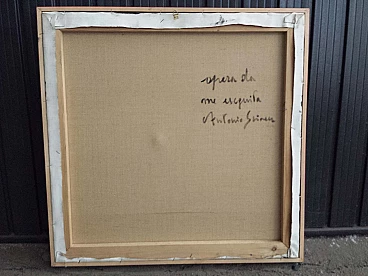 opera da
me eseguita
Antonio